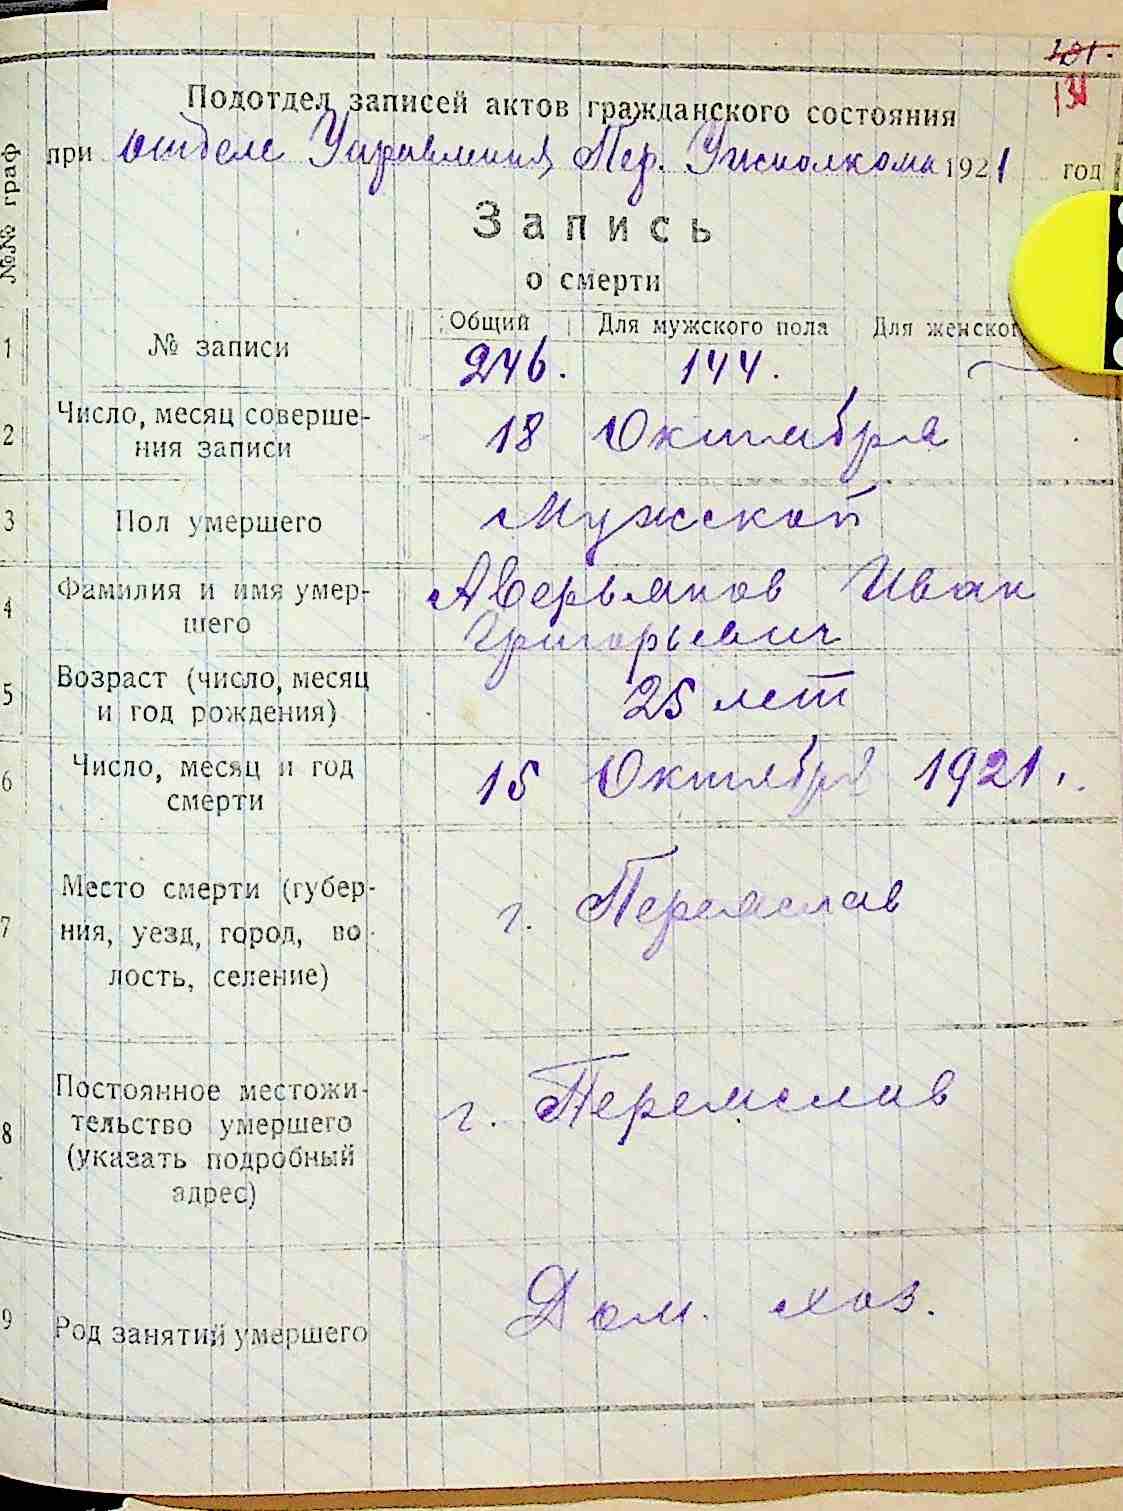 101.
131
Подотдел записей актов гражданского состояния
при отделе Управления Пер. Уисполкома 1921 год
№№ граф
Запись
о смерти
Общий Для мужского пола Для женског
1 № записи 246. 144.
2 Число, месяц соверше-
ния записи 18 Октября
3 Пол умершего Мужской
4 Фамилия и имя умер- Аверьянов Иван
шего Григорьевич
5 Возраст (число, месяц
и год рождения) 25 лет
6 Число, месяц и год
смерти 15 Октября 1921 г.
Место смерти (губер-
7 ния, уезд, город, во-
лость, селение) г. Переяслав
Постоянное местожи-
8 тельство умершего
(указать подробный
адрес) г. Переяслав
9 Род занятий умершего Дом. хоз.